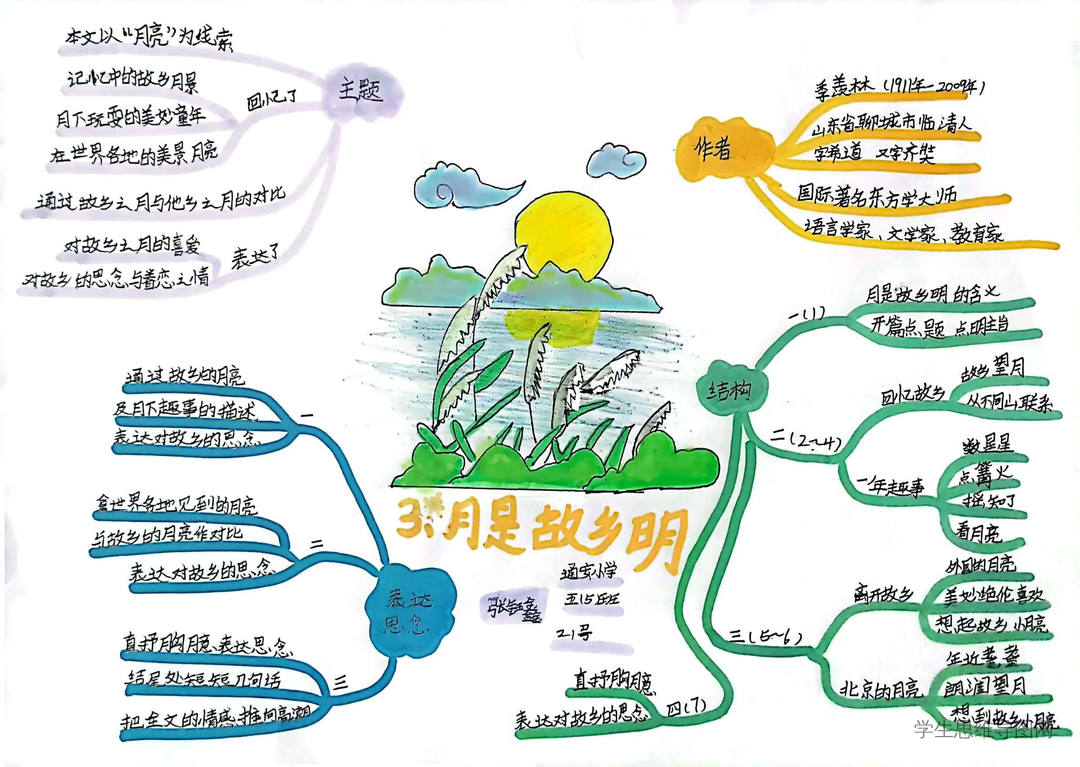 本文以“月亮”为线索
主题
记忆中的故乡月景
回忆了
月下玩耍的美妙童年
在世界各地的美景月亮
通过故乡之月与他乡之月的对比
对故乡之月的喜爱
表达了
对故乡的思念与眷恋之情
作者
季羡林(1911年-2009年)
山东省聊城市临清人
字希逋 又字齐奘
国际著名东方学大师
语言学家、文学家、教育家
结构
一(1)
月是故乡明的含义
开篇点题 点明主旨
二(2~4)
回忆故乡
故乡望月
从不同山联系
童年趣事
数星星
点篝火
摇知了
看月亮
三(5~6)
离开故乡
外国的月亮
美妙绝伦喜欢
想起故乡小月亮
北京的月亮
年近耄耋
朗润望月
想到故乡小月亮
四(7)
直抒胸臆
表达对故乡的思念
表达
思念
一
通过故乡的月亮
及月下趣事的描述
表达对故乡的思念
二
拿世界各地见到的月亮
与故乡的月亮作对比
表达对故乡的思念
三
直抒胸臆表达思念
结尾处短短几句话
把全文的情感推向高潮
3.月是故乡明
通安小学
五15班
张钰鑫
21号
学生思维导图网